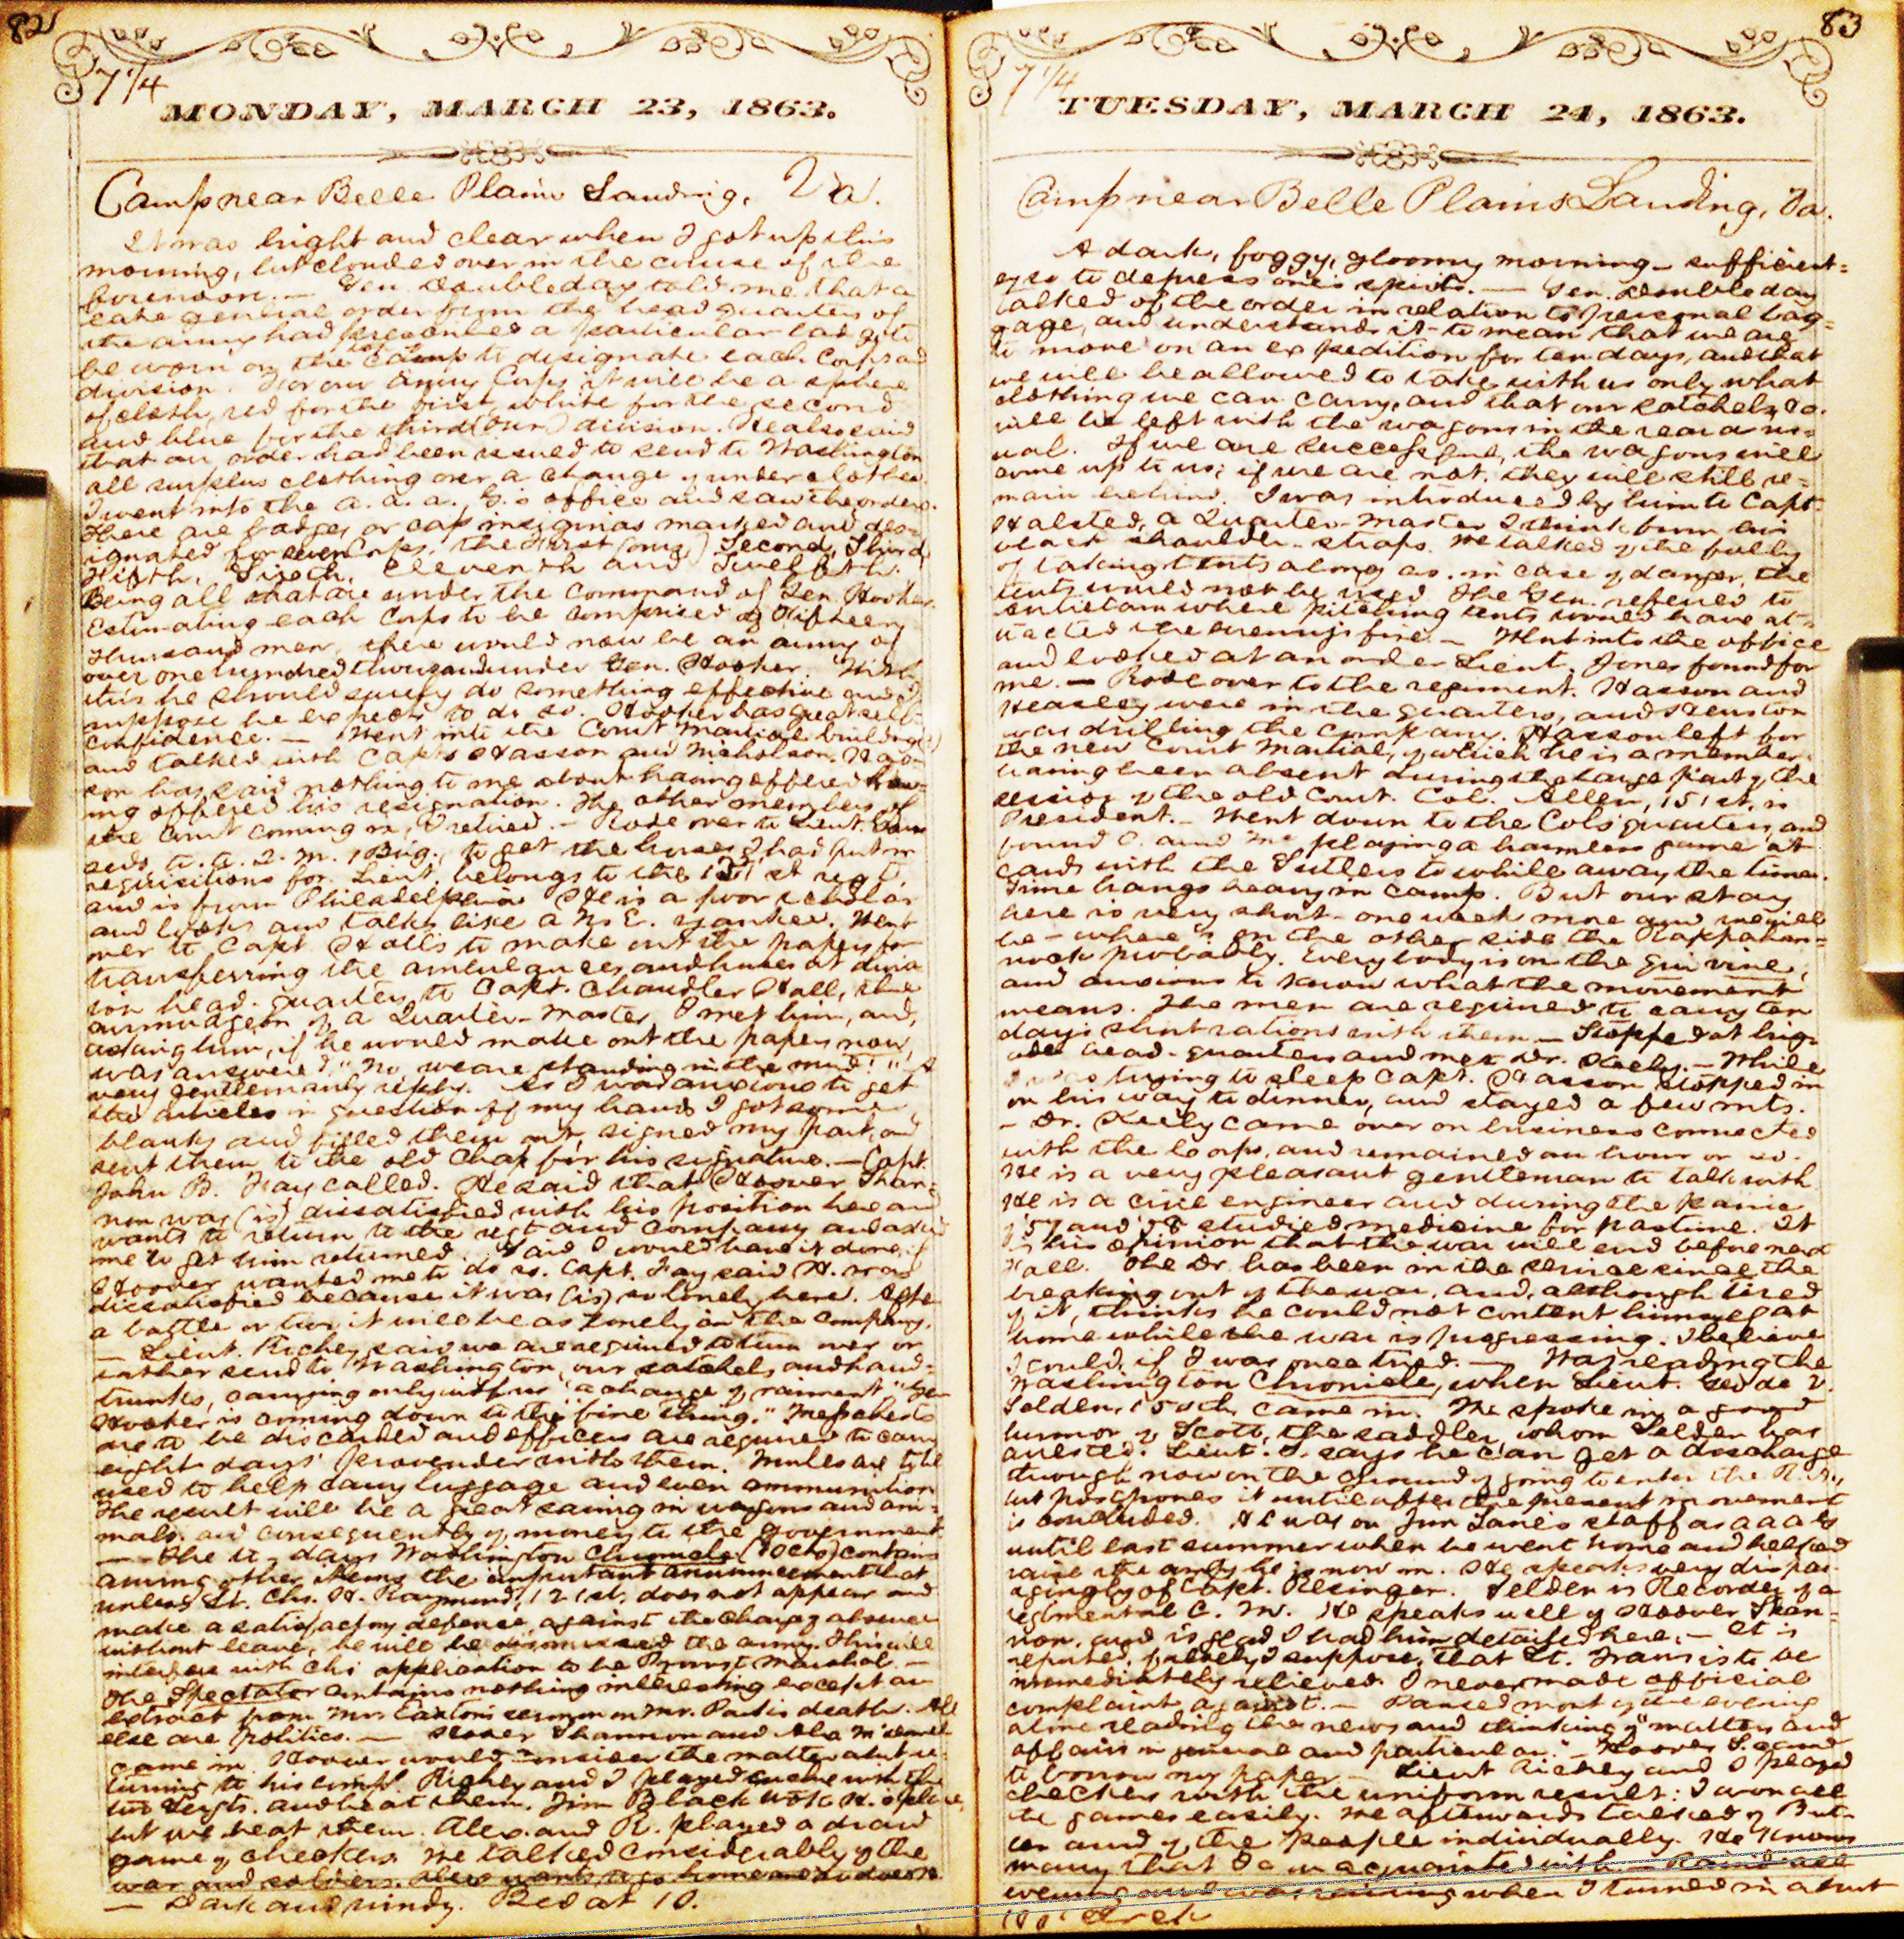 82
7 1/4
MONDAY, MARCH 23, 1863.
Camp near Belle Plain Landing, Va.
It was bright and clear when I got up this
morning, but clouded over in the course of the
forenoon. — Gen. Doubleday told me that a
late general order from the head quarters of
the army had prescribed a particular badge to
be worn on the cap to designate each Corps and
division. For our Army Corps it will be a sphere
of cloth, red for the first, white for the second
and blue for the third (our) division. He also said
that an order had been issued to send to Washington
all surplus clothing over a change of underclothes.
I went into the A. A. A. G.'s office and saw the orders.
There are badges or cap insignias marked and des-
ignated for seven Corps, the First (ours,) Second, Third
Fifth, Sixth, Eleventh and Twelfth.
Being all that are under the command of Gen. Hooker.
Estimating each Corps to be comprised of Fifteen
Thousand men, there would now be an army of
over one hundred thousand under Gen. Hooker. With
this he should surely do something effective and I
suppose he expects to do so. Hooker has great self-
confidence. — Went into the Court Martial building
and talked with Capts Hasson and Nicholson. Has-
son has said nothing to me about having offered hav-
ing offered his resignation. The other members of
the Court coming in, I retired. — Rode over to Lieut.
A. A. Q. M., Brig., to get the horses I had put in
requisitions for. Lieut. belongs to the 151st regt.
and is from Philadelphia. He is a poor scholar
and looks and talks like a N. E. Yankee. Went
over to Capt Hall's to make out the papers for
transferring the ambulances and horses at divis-
ion head-quarters to Capt. Chandler Hall, the
curmudgeon of a Quarter-Master. I met him, and,
asking him, if he would make out the papers now,
was answered, "No, we are standing in the mud!" A
very gentlemanly reply. As I was anxious to get
the articles in question off my hands I got some
blanks and filled them out, signed my part, and
sent them to the old chap for his signature. — Capt.
John B. Fay called. He said that Hoover Shan-
non was (is) dissatisfied with his position here and
wants to return to the regt and company and asked
me to get him returned. Said I would have it done, if
Hoover wanted me to do so. Capt. Fay said H. was
dissatisfied because it was (is) so lonely here. After
a battle or two it will be as lonely in the company.
— Lieut. Richey said we are required to turn over or
rather send to Washington, our satchels and hand-
trunks, carrying only with us "a change of raiment." Gen
Hooker is coming down to the "fine thing." Mess chests
are to be discarded and officers are required to carry
eight days' provender with them. Mules are to be
used to help carry luggage and even ammunition
The result will be a great saving in wagons and ani-
mals and consequently of money to the government.
— The days Washington Chronicle (10 cts) contains
among other items the important announcement that
unless Lt. Chs. H. Raymond, 121st, does not appear and
make a satisfactory defense against the charge of absence
without leave, he will be dismissed the army. This will
interfere with Ch's application to be Provost Marshal. —
The Spectator contains nothing interesting except an
extract from Mrs sermon on Mr. death. All
else are politics. — Hoover Shannon and Alex
came in. Hoover would consider the matter about re-
turning to his comp. Richey and I played euchre with the
two Sergts. and beat them. Jim Black took H.'s place,
but we beat them. Alex. and R. played a draw
game of checkers. We talked considerably of the
war and soldiers. Alex wants to go home
— Dark and windy. Bed at 10.
83
7 1/4
TUESDAY, MARCH 24, 1863.
Camp near Belle Plains Landing, Va.
A dark, foggy, gloomy morning — sufficient-
ly so to depress one's spirits. — Gen. Doubleday
talked of the order in relation to personal bag-
gage, and understands it to mean that we are
to move on an expedition for ten days, and that
we will be allowed to take with us only what
clothing we can carry, and that our satchels &c.
will be left with the wagons in the rear as us-
ual. If we are successful, the wagons will
come up to us; if we are not, they will still re-
main behind. I was introduced by him to Capt.
Halsted, a Quarter-Master I think from his
black shoulder-straps. He talked of the folly
of taking tents along as, in case of danger, the
tents would not be used. The Gen. referred to
Antietam where pitching tents would have at-
tracted the enemy's fire. — Went into the office
and looked at an order Lieut. Jones found for
me. — Rode over to the regiment. Hasson and
Heasley were in the quarters, and
was drilling the company. Hasson left for
the new Court Martial, of which he is a member,
having been absent during the large part of the
session of the old Court. Col. Allen, 151st, is
President. — Went down to the Col's quarters, and
found C. and Mc playing a harmless game at
cards with the Sutlers to while away the time.
Time hangs heavy in camp. But our stay
here is very short — one week more and we will
be — where? on the other side the Rappahan-
nock probably. Everybody is on the qui vive,
and anxious to know what the movement
means. The men are required to carry ten
days short rations with them. — Stopped at brig-
ade head-quarters and met Dr. Keely. — While
I was trying to sleep Capt. Hasson stopped in
on his way to dinner, and stayed a few mts.
— Dr. Keely came over on business connected
with the Corps, and remained an hour or so.
He is a very pleasant gentleman to talk with
He is a civil engineer and during the panic
of '57 and '58 studied medicine for pastime. It
is his opinion that the war will end before next
Fall. The Dr. has been in the service since the
breaking out of the war, and, although tired
of it, thinks he could not content himself at
home while the war is progressing. I believe
I could, if I was once tried. — Was reading the
Washington Chronicle, when Lieut.
Selden, 150th, came in. He spoke in a good
humor of Scott, the saddler, whom Selden has
arrested. Lieut. S. says he can get a discharge
through now on the ground of going to enter the R. A.,
but postpones it until after the present movement
is concluded. He was on Jim Lane's staff as A A A G
until last summer when he went home and helped
raise the army he is now in. He speaks very dispar-
agingly of Capt. Resinger. Selden is Recorder of a
regimental C. M. He speaks well of Hoover Shan-
non, and is glad I had him detailed here. — It is
reported, falsely I suppose, that Lt. is to be
immediately relieved. I never made official
complaint against. — Passed most of the evening
alone reading the news and thinking of "matters and
affairs in general and particular." — Hoover S. came
to borrow my paper — Lieut Richey and I played
checkers with the uniform result: I won all
the games easily. We afterwards talked of But-
ler and of the people individually. He knows
many that I am acquainted with. — Rained all
evening and was raining when I turned in about
10 o'clock